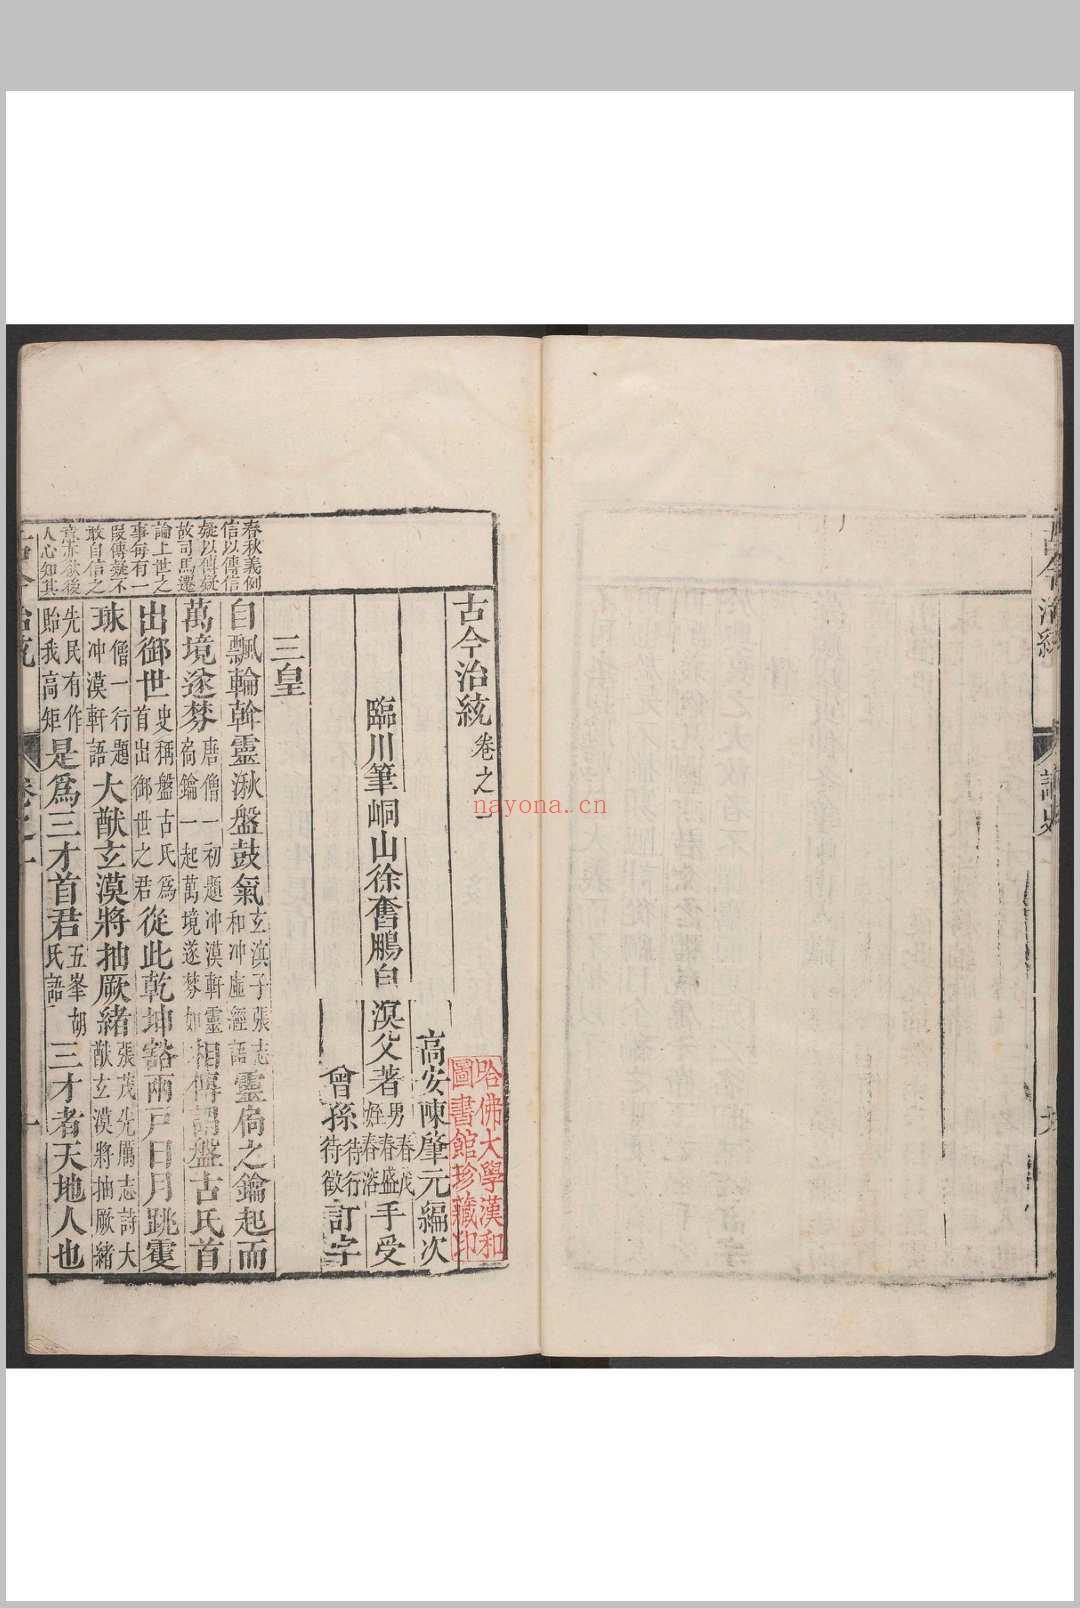 古今治統 卷之一
高安陳肇元編次
臨川筆峒山徐奮鵬自溟父著 男春茂 姪春盛 春溶 手受
曾孫 待行 待徵 訂字
三皇
自飄輪斡靈湫盤鼓氣 玄滇子張志和沖虛經語 靈扃之鑰起而
萬境遂棼 唐僧一初題冲漠軒靈扃鑰一起萬境遂棼如 相傳謂盤古氏首
出御世 史稱盤古氏爲首出御世之君 從此乾坤豁兩戸日月跳雙
球 僧一行題冲漠軒語 大猷玄漠將抽厥緒 張茂先厲志詩大猷玄漠將抽厥緒
先民有作貽我高矩 是爲三才首君 五峯胡氏語 三才者天地人也
春秋義例
信以傳信
疑以傳疑
故司馬遷
論上世之
事每有一
段傳疑不
敢自信之
意亦欲後
人心知其
古今治統 卷之一 一
哈佛大學漢和
圖書館珍藏印
nayona.cn